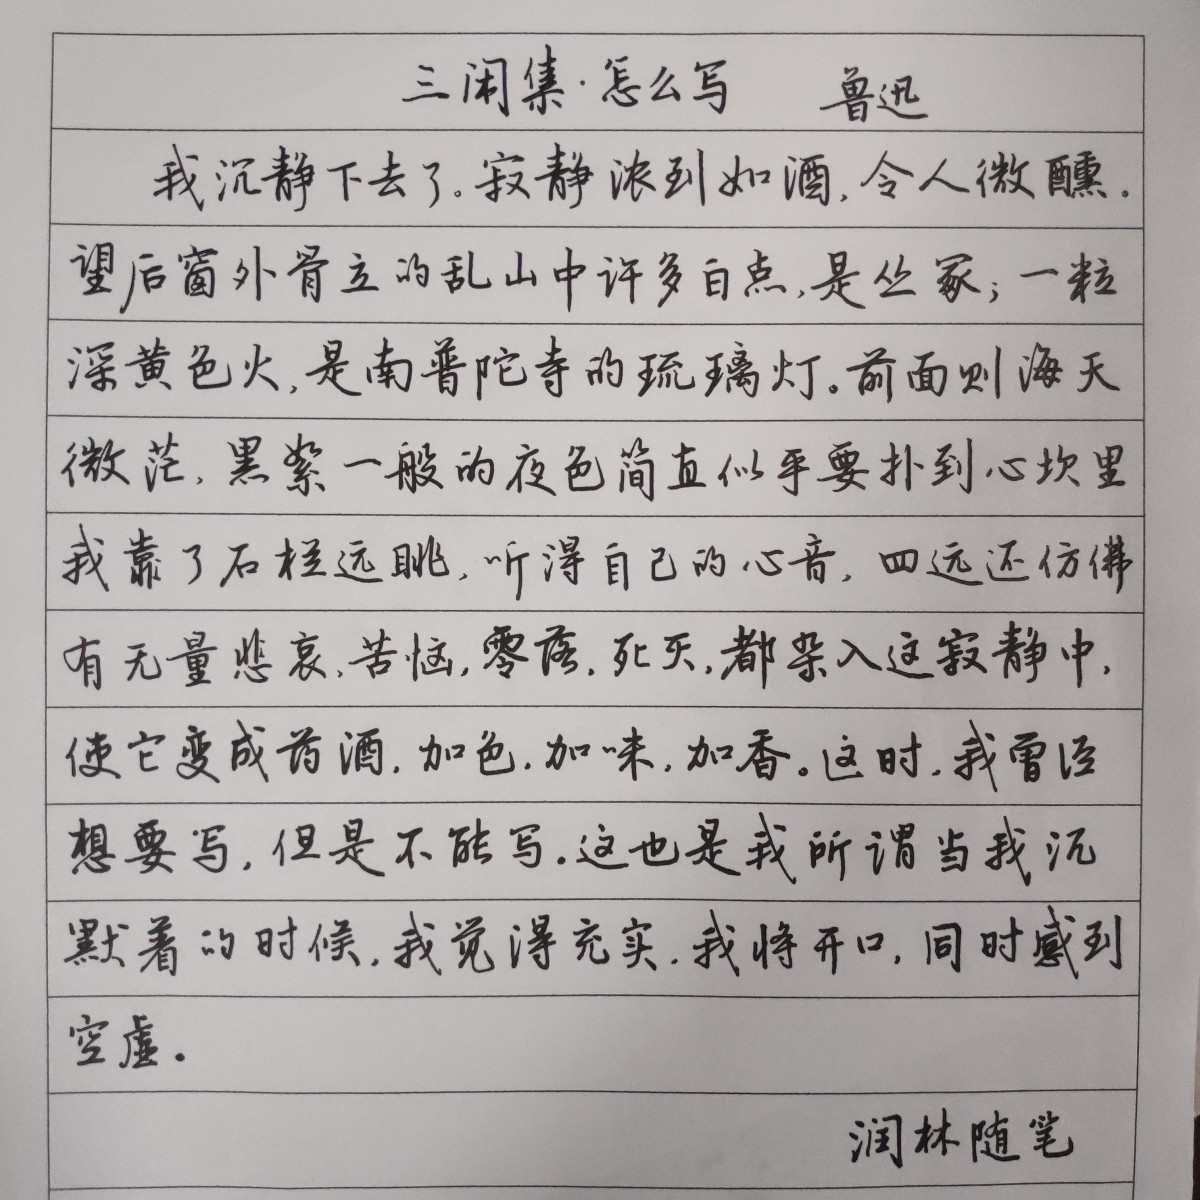 三闲集·怎么写 鲁迅
我沉静下去了。寂静浓到如酒,令人微醺.
望后窗外骨立的乱山中许多白点,是丛冢;一粒
深黄色火,是南普陀寺的琉璃灯。前面则海天
微茫,黑絮一般的夜色简直似乎要扑到心坎里
我靠了石栏远眺,听得自己的心音,四远还仿佛
有无量悲哀,苦恼,零落,死灭,都杂入这寂静中,
使它变成药酒,加色,加味,加香。这时,我曾经
想要写,但是不能写.这也是我所谓当我沉
默着的时候,我觉得充实.我将开口,同时感到
空虚.
润林随笔